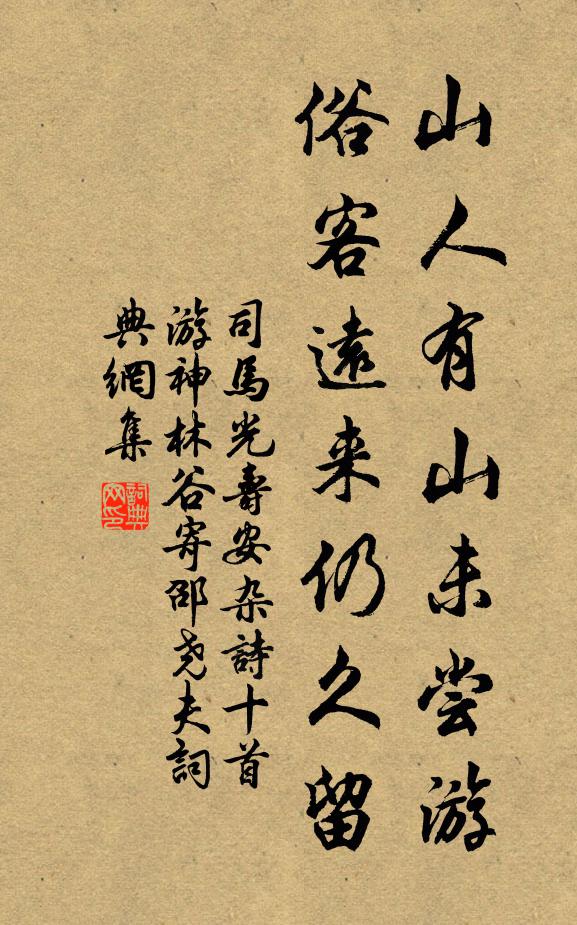 山人有山未尝游
俗客遠来仍久留
司馬光壽安杂詩十首
游神林谷寄邵尧夫詞
典網集
詞典网印